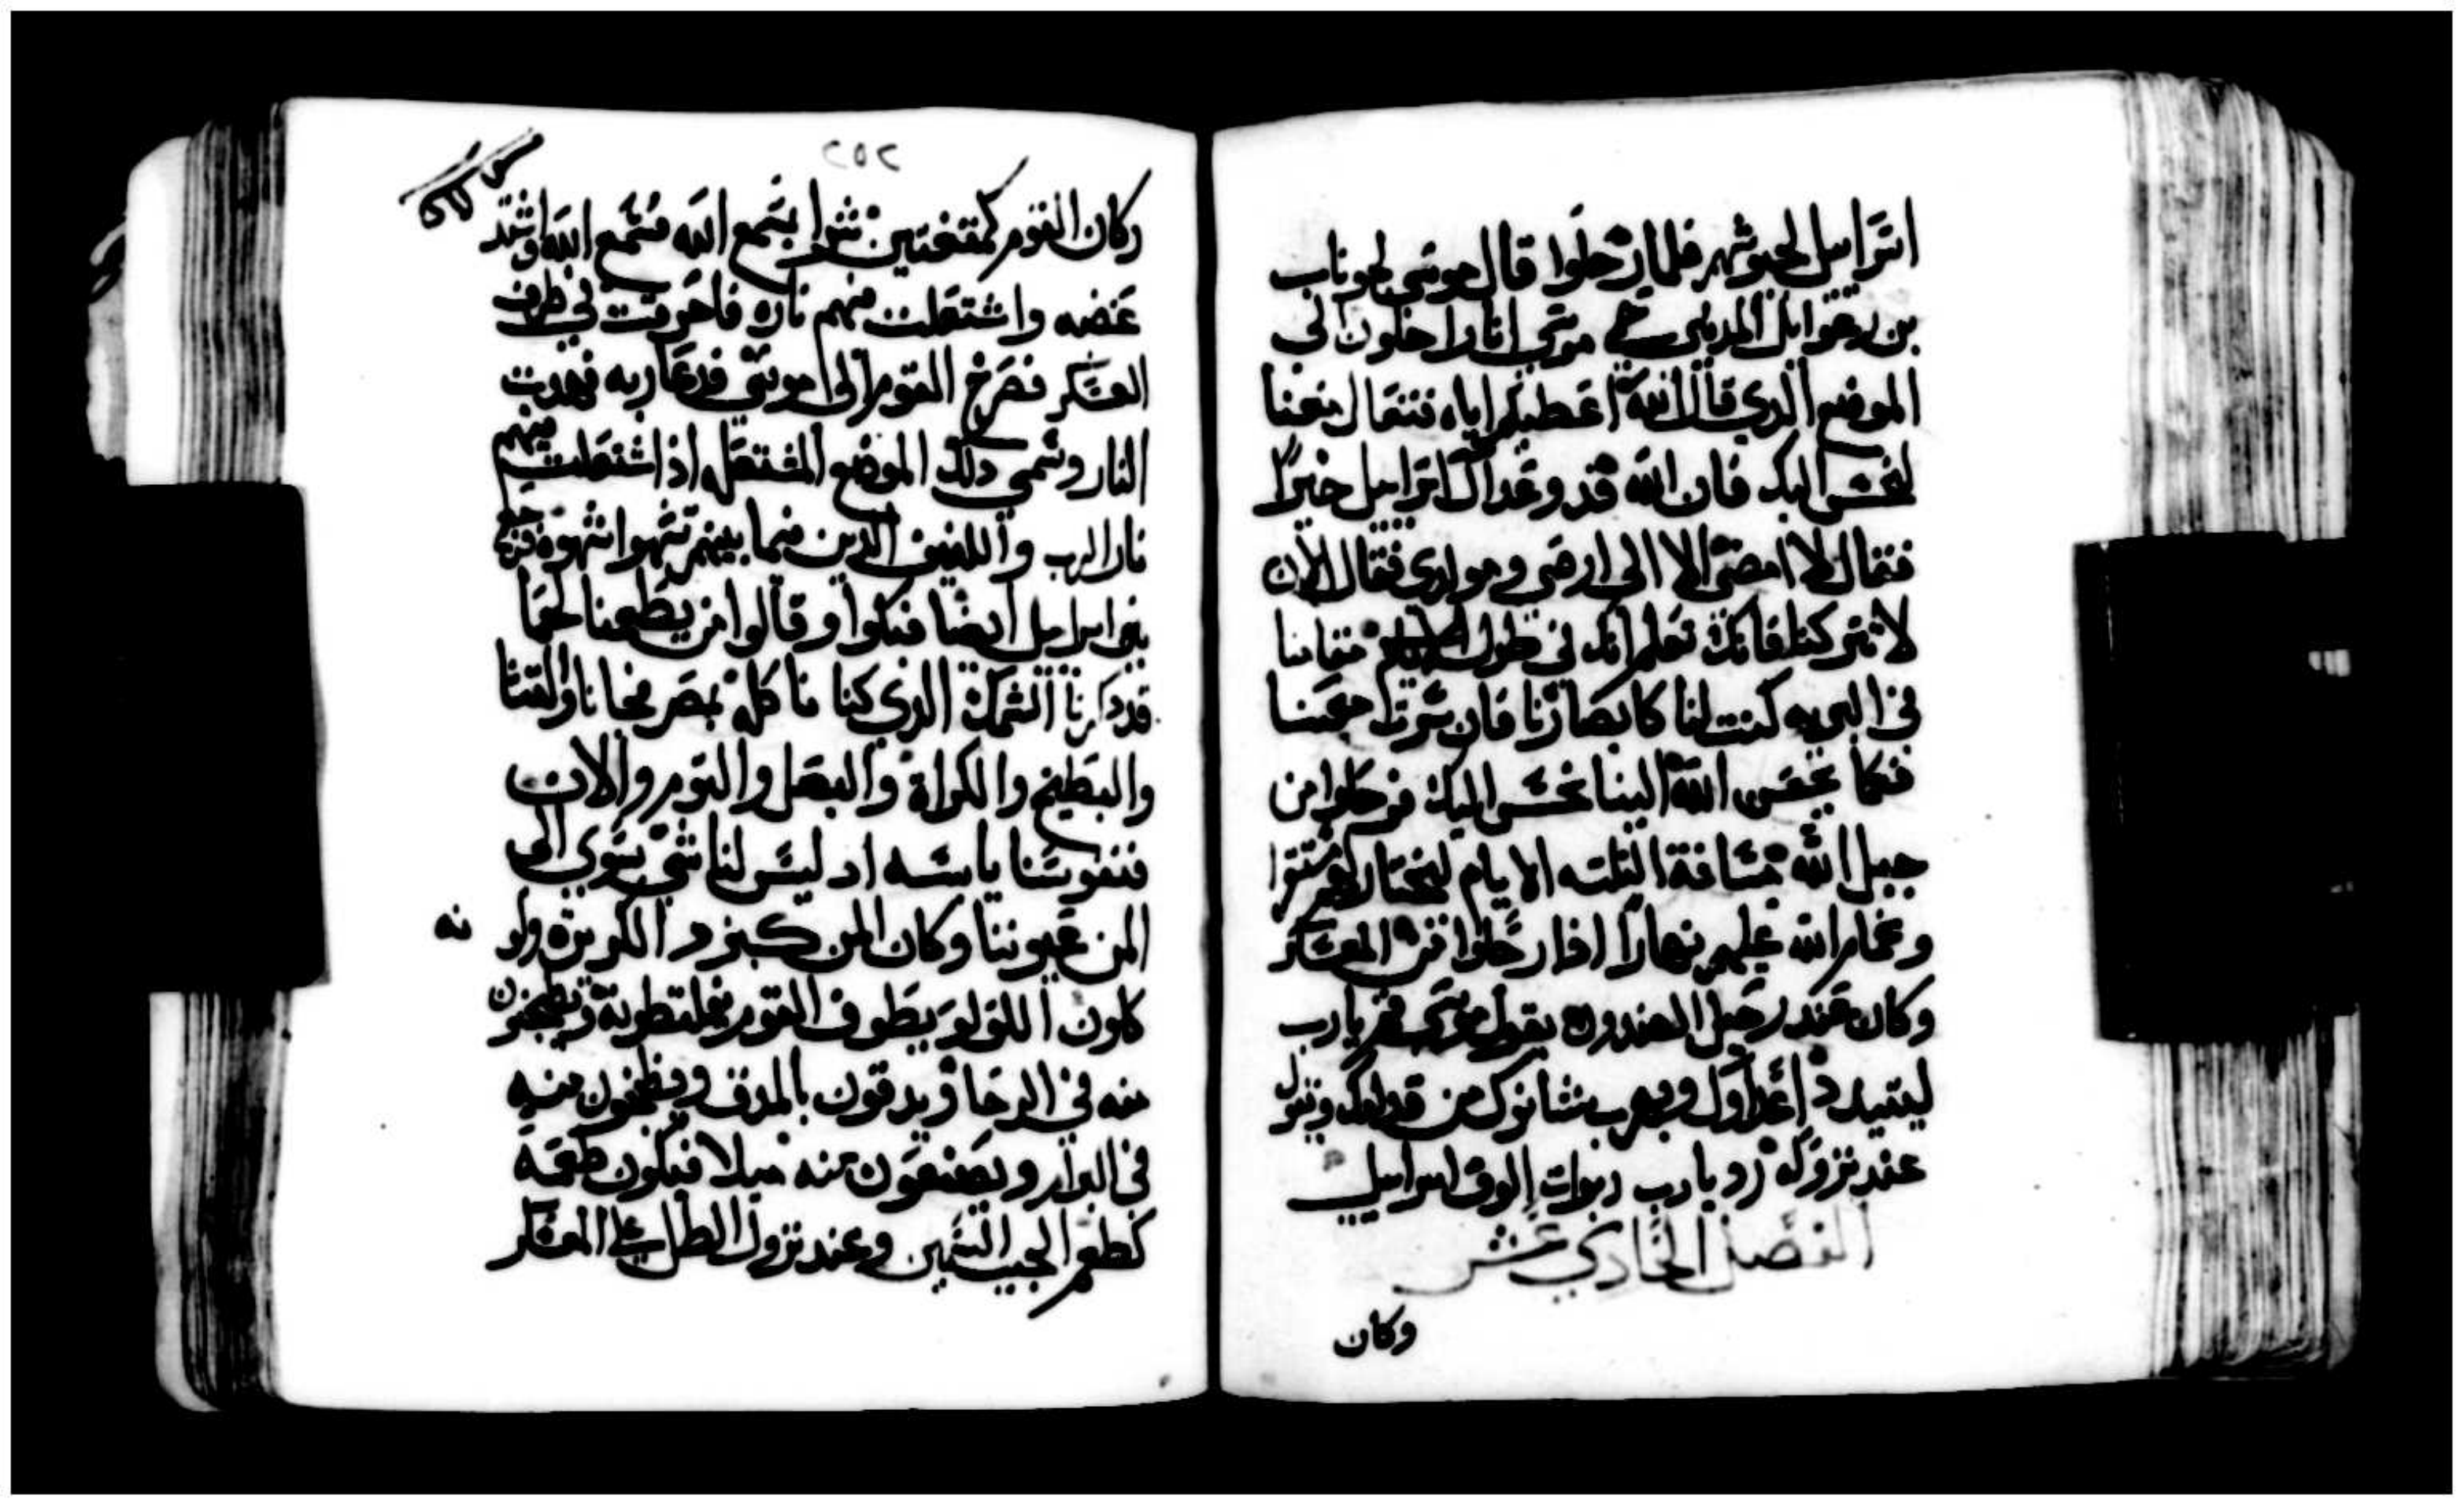 اسراييل لجيوشهم فلما رحلوا قال موسى لحوباب
بن رعوايل المديني حمي موسي انا راحلون الي
الموضع الدي قال الله اعطيكم اياه فتعال معنا
لنحسن اليك فان الله قد وعد ال اسراييل خيرًا
فقال لا امضي الا الي ارضي ومولدي فقال الان
لا تتركنا فانك تعلم انك في طول مقامنا
في البريه كنت لنا كابصارنا فان سرت معنا
فكما يحسن الله الينا نحسن اليك فرحلوا من
جبل الله مسافة الثلثه الايام ليختار لهم مستقرا
وغمام الله عليهم نهارًا اذا رحلوا من المعسكر
وكان عند رحيل الصندوق يقول موسي قم يارب
ليتبدد اعداوك ويهرب شانوك من قدامك ويقول
عند نزوله رد يارب ربوات الوف اسراييل
الفصل الحادي عشر
وكان
٢٥٢
وكان القوم كمتعنتين شرا بسمع الله فسمع الله واشتد
غضبه واشتعلت منهم ناره فاحرقت في طرف
العسكر فصرخ القوم الي موسي فدعا ربه فهدت
النار وسمي دلك الموضع المشتعل اذ اشتعلت منهم
نار الرب واللفيف الدين فيما بينهم تشهوا شهوة فرجع
بني اسراييل ايضًا فبكوا وقالوا من يطعمنا لحمًا
قد دكرنا السمك الذي كنا ناكله بمصر مجانا والقثا
والبطيخ والكراة والبصل والتوم والان
فنفوسنا يابسه اد ليس لنا شي سوي الي
المن عيوننا وكان المن كبزر الكزبره ولو نه
كلون اللولو يطوف القوم فيلتقطونه ويطحنون
منه في الرحا ويدقون بالمدق ويطبخون منه
في البرام ويصنعون منه ميلا فيكون طعمه
كطعم الجيب السمين وعند نزول الطل علي المعسكر